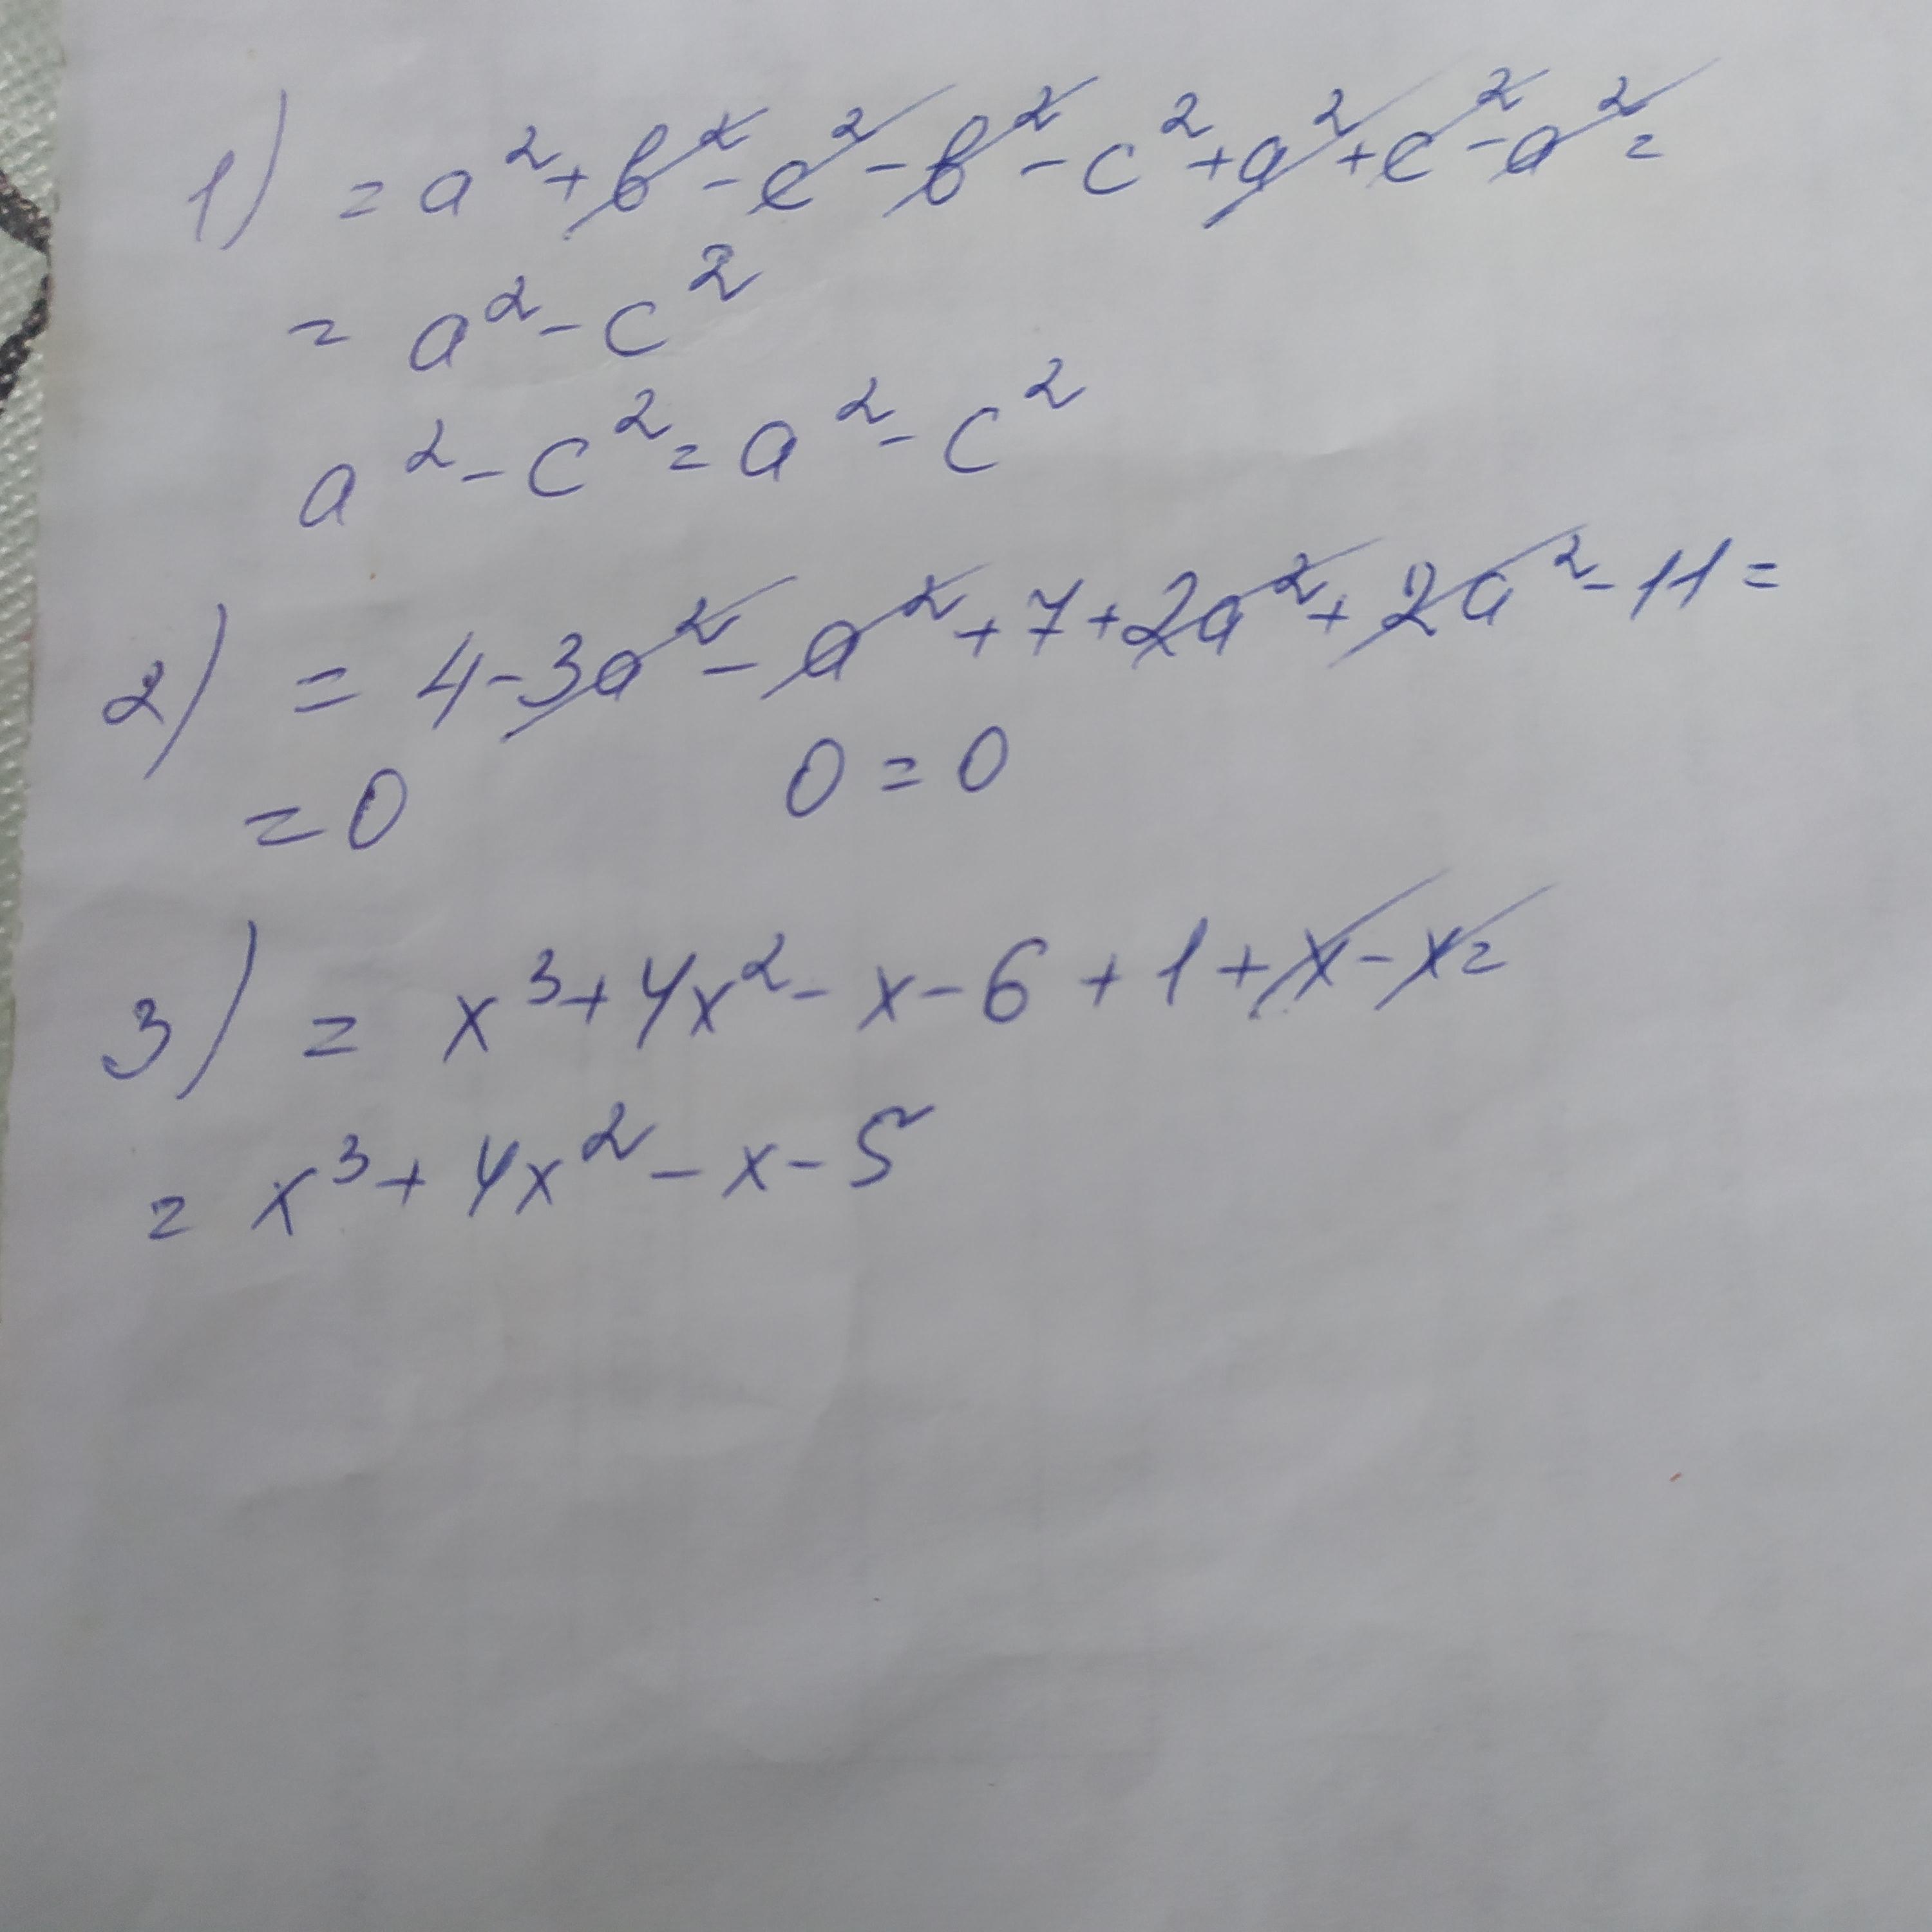 1) = a² + b² - c² - b² - c² + a² + c² - a² =
= a² - c²
a² - c² = a² - c²
2) = 4 - 3a² - a² + 7 + 2a² + 2a² - 11 =
= 0 0 = 0
3) = x³ + 4x² - x - 6 + 1 + x - x =
= x³ + 4x² - x - 5